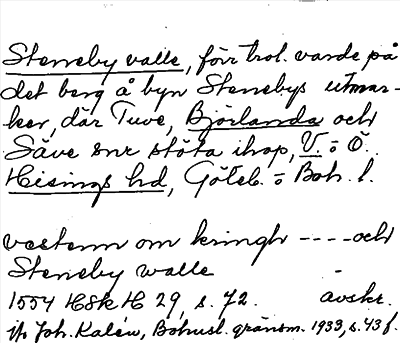 Steneby valle, förr trol. varde på
det berg å byn Stenebys utmar-
ker, där Tuve, Björlanda och
Säve snr stöta ihop, V. o Ö.
Hisings hd, Göteb. o Boh. l.
vestenn om kringh ---- och
Steneby walle -
1554 HSkH 29, s. 72. avskr.
Joh. Kalén, Bohusl. gränsm. 1933, s. 43 f.